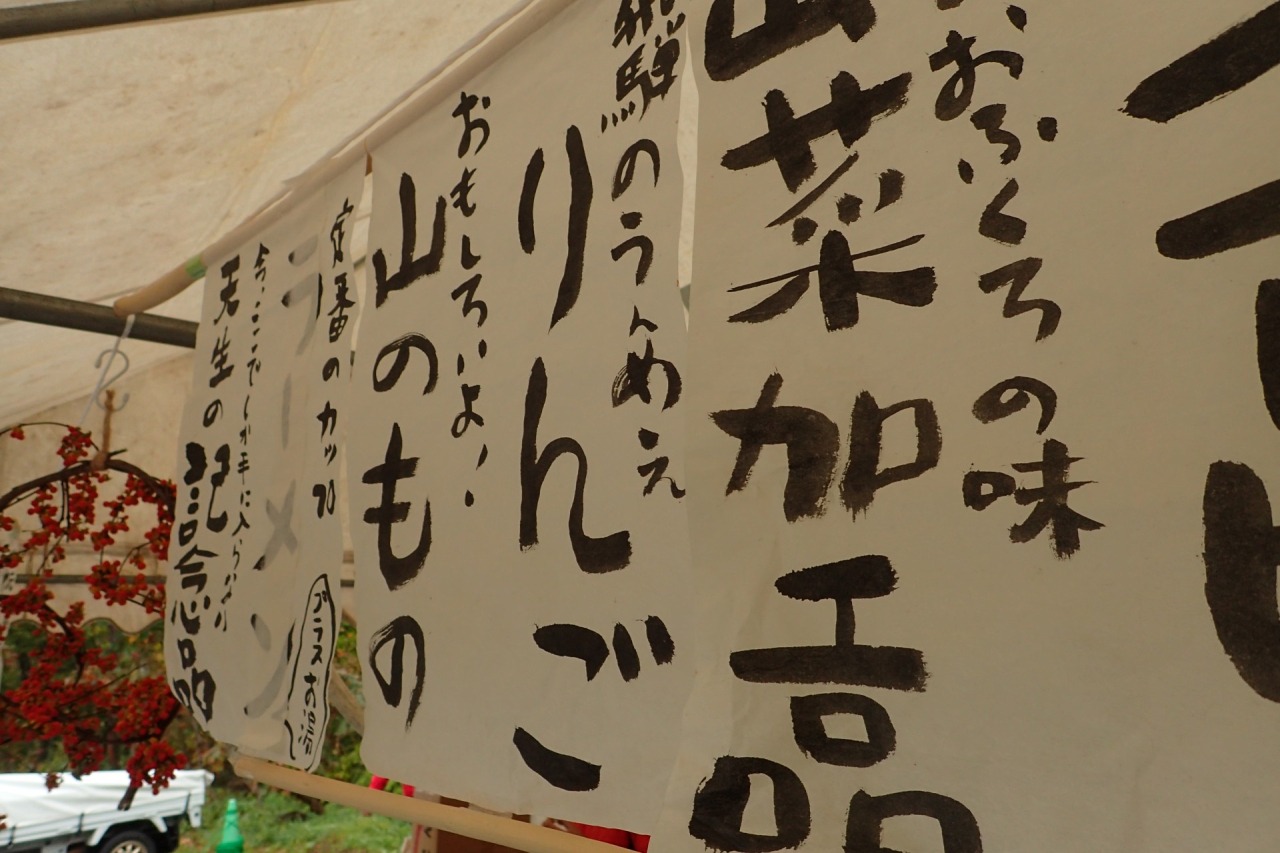 おふくろの味
山菜加工品
飛騨のうんめえ
りんご
おもしろいよ!
山のもの
定番のカップ
ラーメン
プラスお湯
今、ここでしか手に入らない
天生の記念品